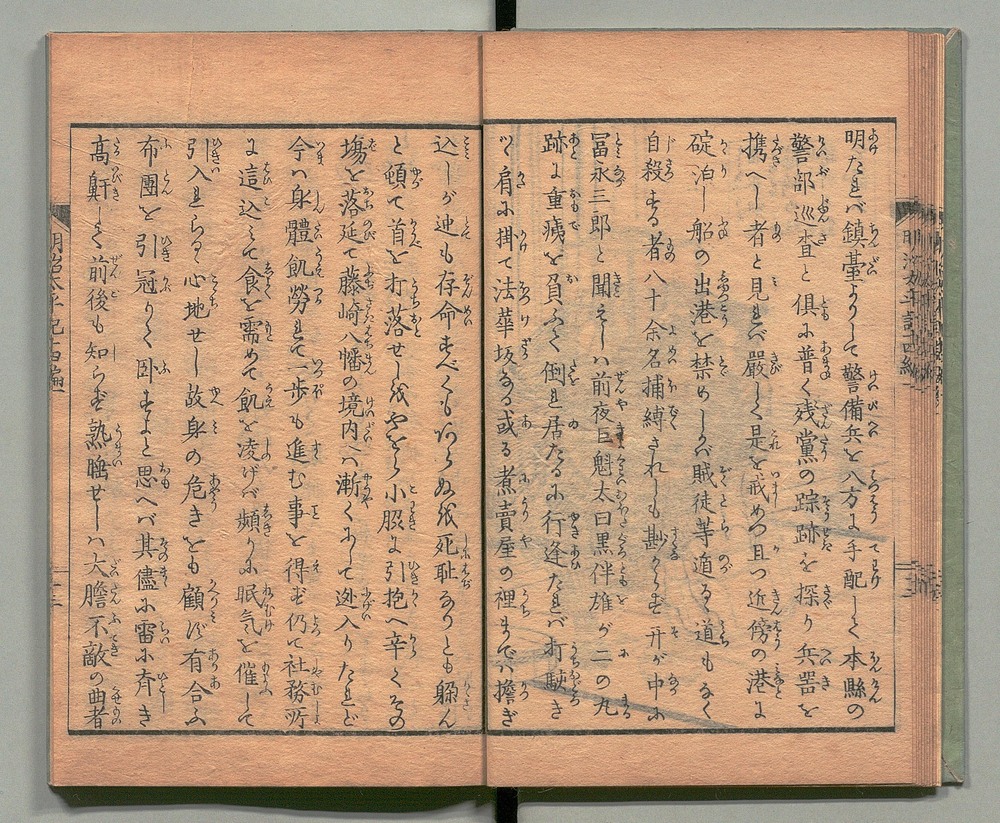 明たれバ鎮臺よりして警備兵を八方に手配して本縣の
警部巡査と倶に普く残黨の踪跡を探り兵器を
携へし者と見れバ嚴しく是を戒めつ且つ近傍の港に
碇泊し船の出港を禁めしかバ賊徒等遁るゝ道もなく
自殺する者八十余名捕縛されしも尠からず开が中に
冨永三郎と聞えしハ前夜巨魁太田黒伴雄が二の丸
跡に重痍を負ふて倒れ居たるに行逢たれバ打駭き
ツヽ肩に掛て法華坂なる或る煮賣屋の裡までハ擔ぎ
込しが迚も存命すべくもあらぬ我死耻なりとも躲ん
と頓て首を打落せしをやをら小脇に引抱へ辛くその
塲を落延て藤崎八幡の境内へ漸くにして迯入りたれど
今ハ身體飢勞れて一歩も進む事を得ず仍て社務所
に這込て食を需めて飢を凌げバ頻りに眠気を催して
引入れらるゝ心地せし故身の危きをも顧ず有合ふ
布團を引冠りて卧すよと思へバ其儘に雷に斉き
髙鼾して前後も知らず熟睡せしハ大膽不敵の曲者
明治太平記十四編